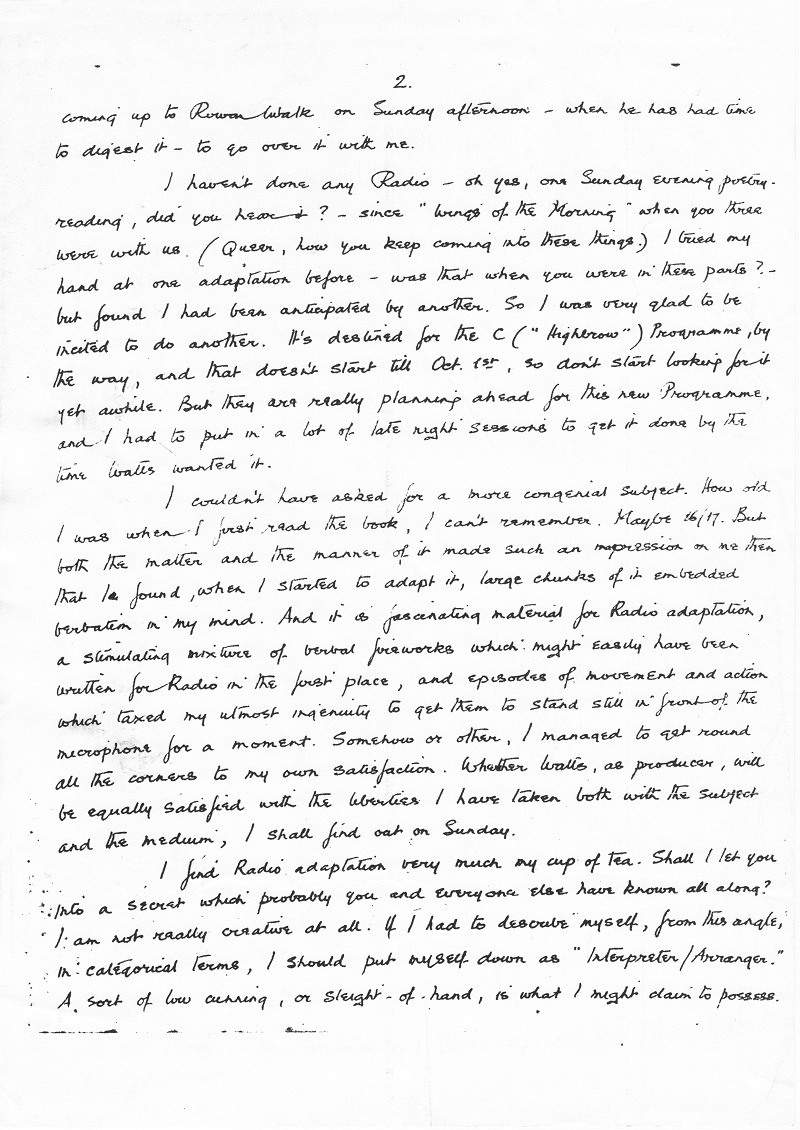 2.
coming up to Rowan Walk on Sunday afternoon - when he has had time
to digest it - to go over it with me.
I haven't done any Radio - oh yes, one Sunday evening poetry-
reading, did you hear it? - since "Wings of the Morning" when you three
were with us. (Queer, how you keep coming into these things.) I tried my
hand at one adaptation before - was that when you were in these parts? -
but found I had been anticipated by another. So I was very glad to be
incited to do another. It's destined for the C ("Highbrow") Programme, by
the way, and that doesn't start till Oct. 1st, so don't start looking for it
yet awhile. But they are really planning ahead for this new Programme,
and I had to put in a lot of late night sessions to get it done by the
time Watts wanted it.
I couldn't have asked for a more congenial subject. How old
I was when I first read the book, I can't remember. Maybe 16/17. But
both the matter and the manner of it made such an impression on me then
that I found, when I started to adapt it, large chunks of it embedded
verbatim in my mind. And it is fascinating material for Radio adaptation,
a stimulating mixture of verbal fireworks which might easily have been
written for Radio in the first place, and episodes of movement and action
which taxed my utmost ingenuity to get them to stand still in front of the
microphone for a moment. Somehow or other, I managed to get round
all the corners to my own satisfaction. Whether Watts, as producer, will
be equally satisfied with the liberties I have taken both with the subject
and the medium, I shall find out on Sunday.
I find Radio adaptation very much my cup of tea. Shall I let you
into a secret which probably you and everyone else have known all along?
I am not really creative at all. If I had to describe myself, from this angle,
in categorical terms, I should put myself down as "Interpreter/Arranger."
A sort of low cunning, or sleight-of-hand, is what I might claim to possess.